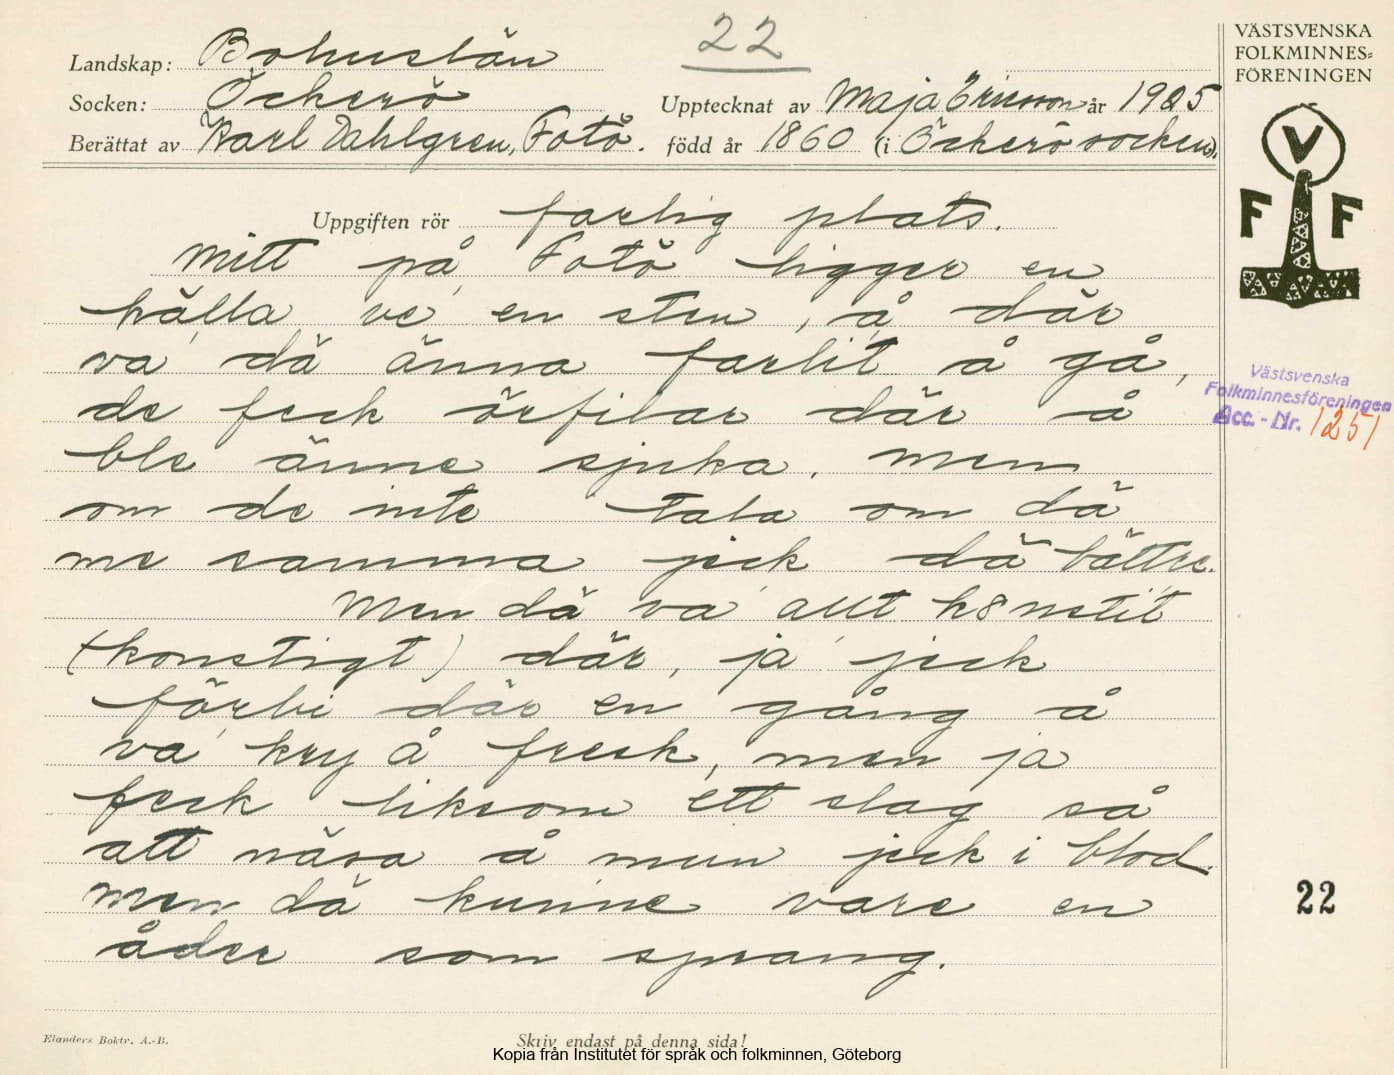 22
Landskap: Bohuslän
Socken: Öckerö
Upptecknat av Maja Ericson år 1925
Berättat av Karl Dahlgren, Fotö. född år 1860 (i Öckerö socken).
VÄSTSVENSKA
FOLKMINNES=
FÖRENINGEN
V
F F
Uppgiften rör farlig plats.
Mitt på Fotö ligger en
hälla ve en sten, å där
va dä änna farlit å gå,
de feck örfilar där å
ble änne sjuka. men
om de inte tala om dä
me samma jeck dä bättre.
Men dä va allt kånstit
(konstigt) där, ja jeck
förbi där en gång å
va kry å fresk, men ja
feck liksom ett slag så
att näsa å mun jeck i blod.
men dä kunne vare en
åder som sprang.
Västsvenska
Folkminnesföreningen
Acc. - Nr. 1251
22
Elanders Boktr. A.-B.
Skriv endast på denna sida!
Kopia från Institutet för språk och folkminnen, Göteborg